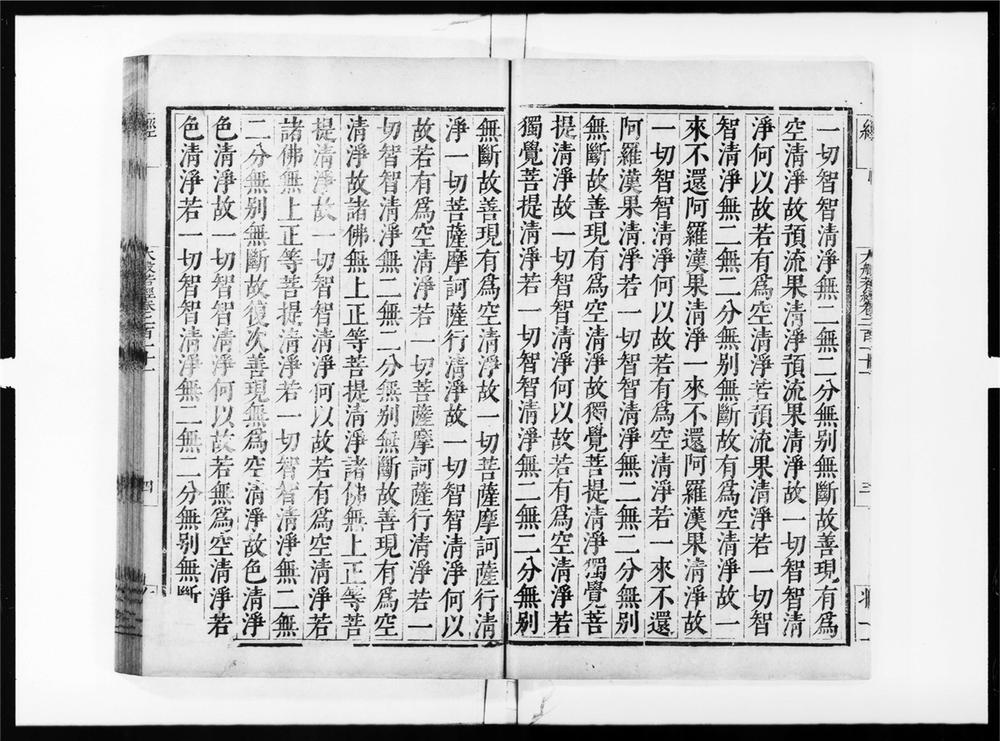 一切智智清淨無二無二分無別無斷故善現有爲
空清淨故預流果清淨預流果清淨故一切智智清
淨何以故若有爲空清淨若預流果清淨若一切智
智清淨無二無二分無別無斷故有爲空清淨故一
來不還阿羅漢果清淨一來不還阿羅漢果清淨故
一切智智清淨何以故若有爲空清淨若一來不還
阿羅漢果清淨若一切智智清淨無二無二分無別
無斷故善現有爲空清淨故獨覺菩提清淨獨覺菩
提清淨故一切智智清淨何以故若有爲空清淨若
獨覺菩提清淨若一切智智清淨無二無二分無別
無斷故善現有爲空清淨故一切菩薩摩訶薩行清
淨一切菩薩摩訶薩行清淨故一切智智清淨何以
故若有爲空清淨若一切菩薩摩訶薩行清淨若一
切智智清淨無二無二分無別無斷故善現有爲空
清淨故諸佛無上正等菩提清淨諸佛無上正等菩
提清淨故一切智智清淨何以故若有爲空清淨若
諸佛無上正等菩提清淨若一切智智清淨無二無
二分無別無斷故復次善現無爲空清淨故色清淨
色清淨故一切智智清淨何以故若無爲空清淨若
色清淨若一切智智清淨無二無二分無別無斷
經
四